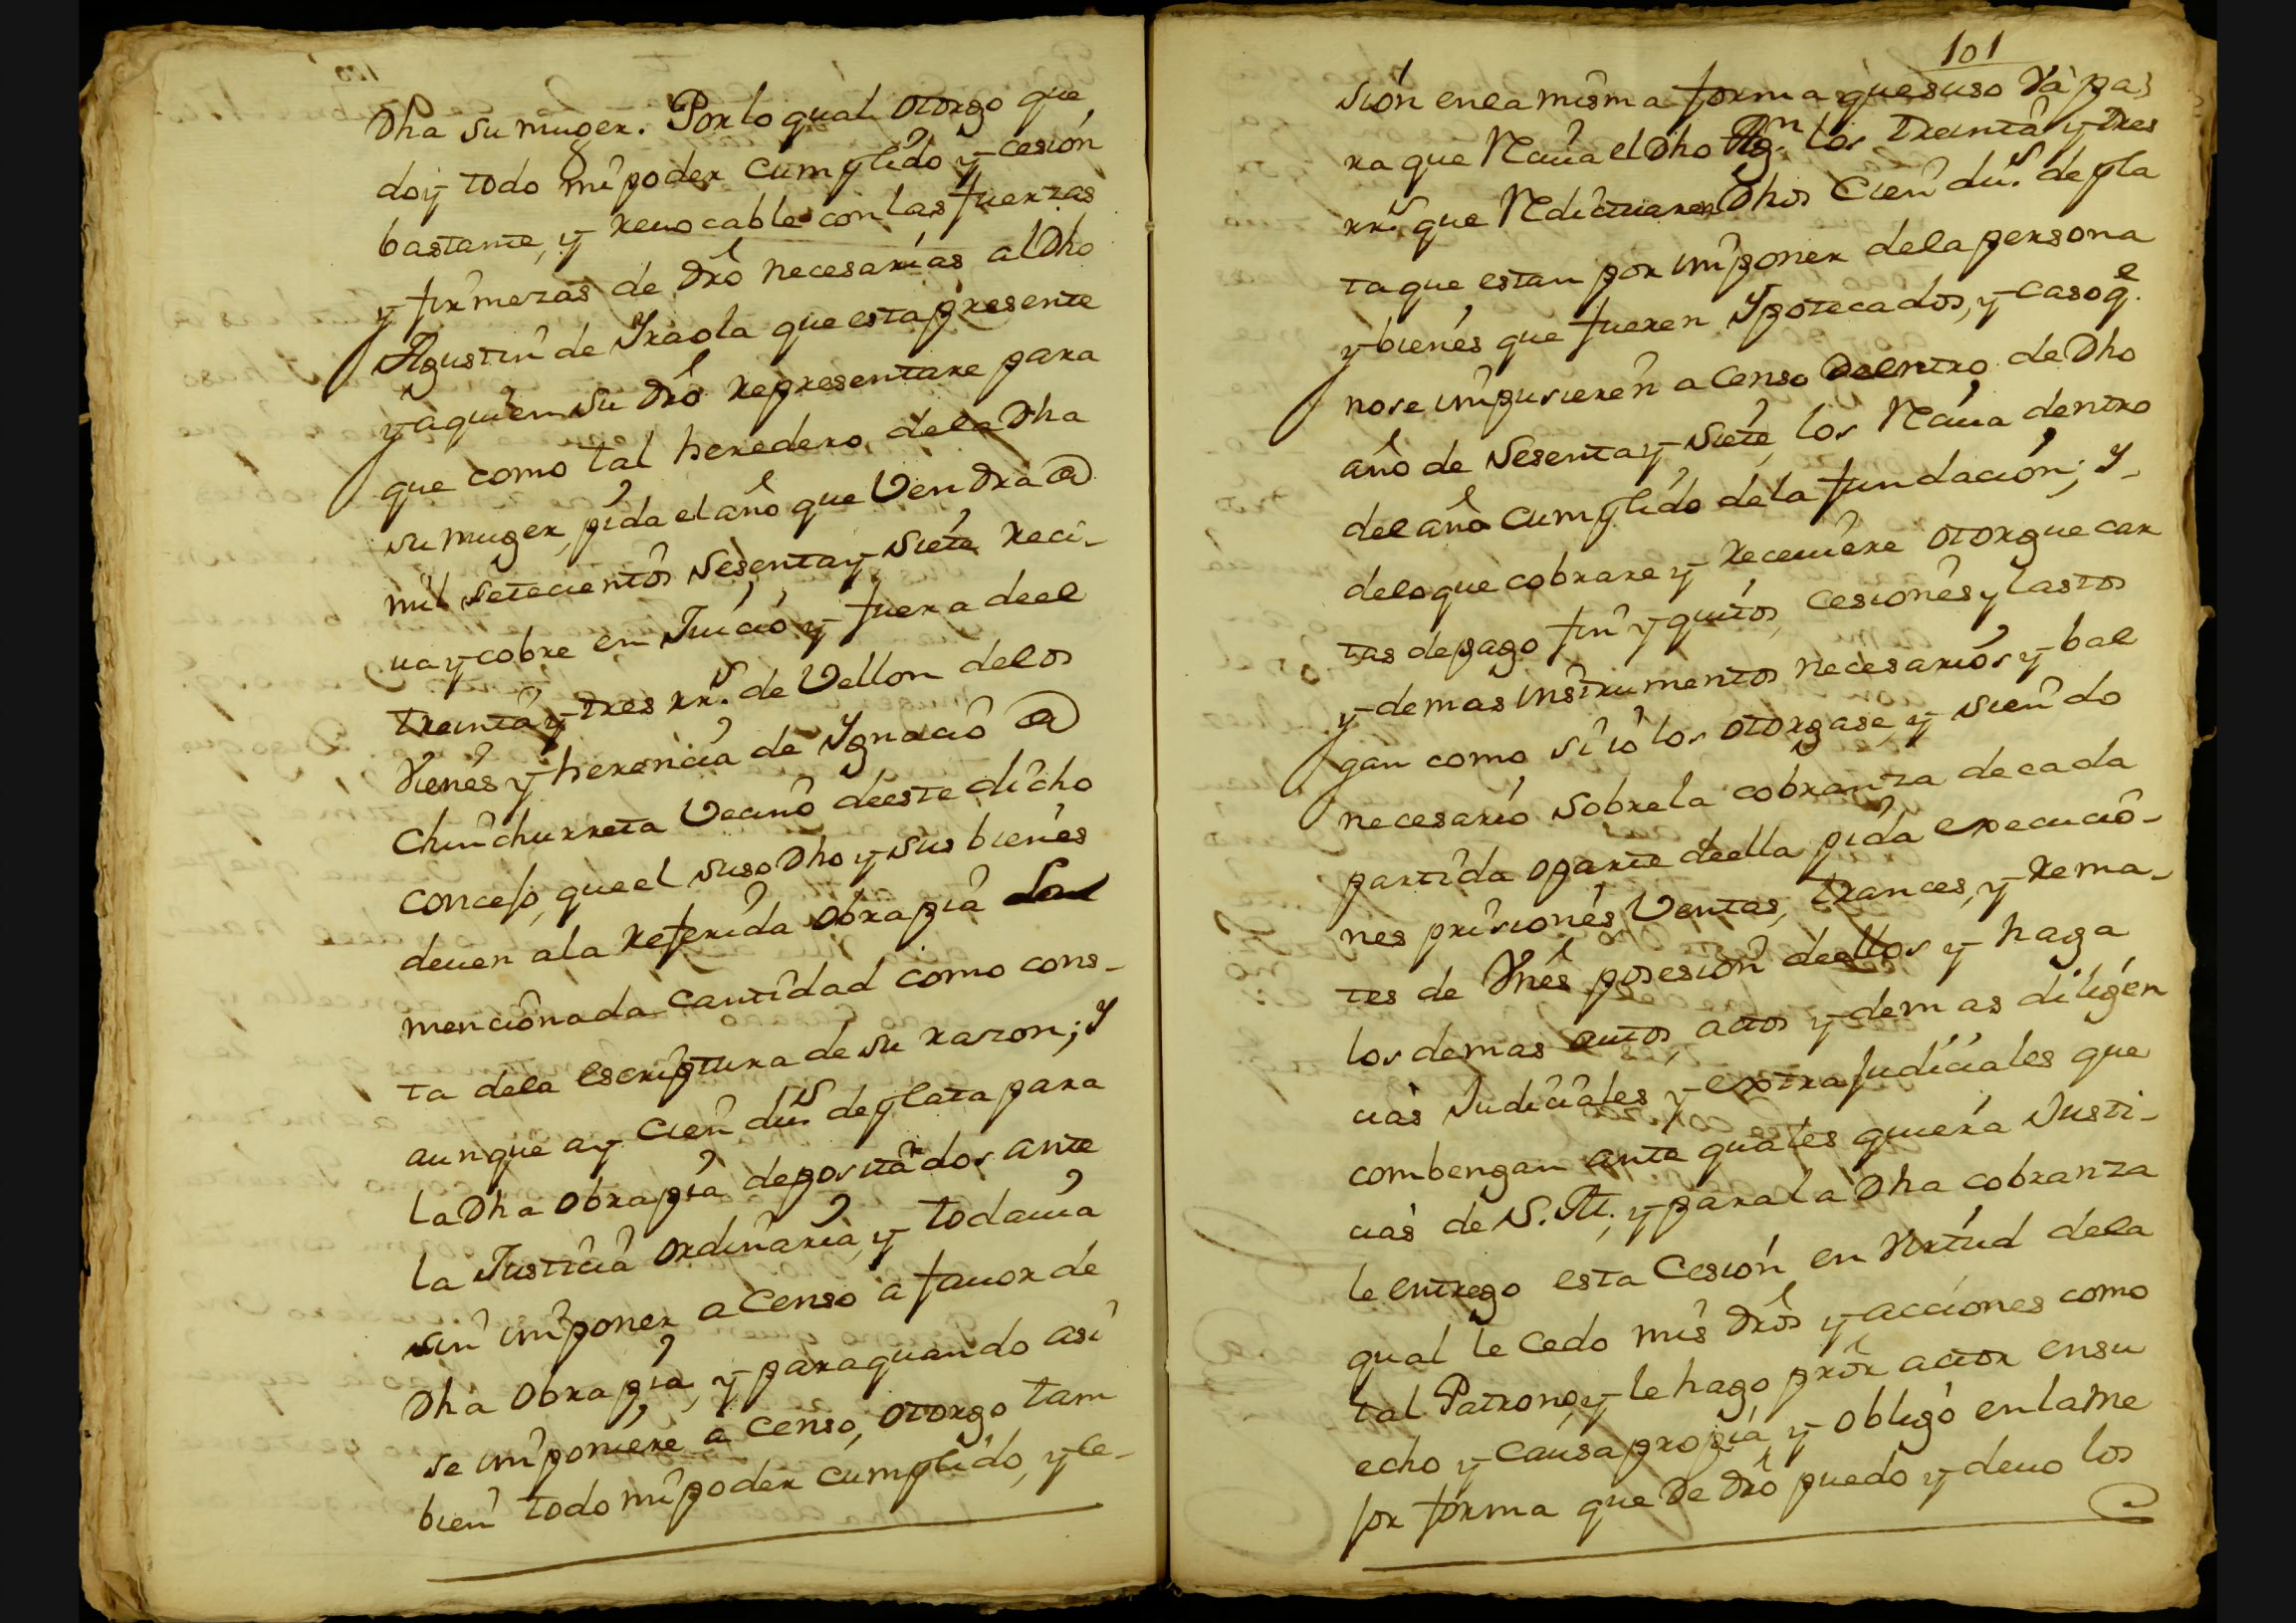 Dha su muger. Por lo qual otorgo que
doy todo mi poder cumplido y cesión
bastante, y revocable con las fuerzas
y firmezas de dro necesarias al Dho
Agustin de Yraola que esta presente
y a quien su dro representare para
que como tal heredero de la Dha
su muger, pida el año que Vendra @
mil setecientos sesenta y siete reci-
va y cobre en Juicio y fuera de el
treinta y tres rr.s de Vellon de los
Vienes y herencia de Ygnacio @
Chinchurreta Vecino de este dicho
concejo, que el suso Dho y sus bienes
deven a la referida obra pia
mencionada cantidad como cons-
ta de la escriptura de su razon; y
aunque ay cien du.s de plata para
la Dha obra pia depositados ante
la Justicia ordinaria, y todavia
sin imponer a Censo a favor de
Dha obra pia, y para quando asi
se imponiere a Censo, otorgo tam
bien todo mi poder cumplido, y ce-
101
sión en la misma forma que suso Va pa
ra que Reciva el Dho Ag.n los treinta y tres
rr.s que Redictuaren Dhos Cien du.s de pla
ta que estan por imponer de la persona
y bienes que fueren Ypotecados, y caso q.e
no se impusieren a Censo dentro de Dho
año de sesenta y siete, los Reciva dentro
del año cumplido de la fundación; y-
de lo que cobrare y receviere otorgue car
tas de pago fin y quitos, cesiones y lastos
y demas instrumentos necesarios y bal
gan como si io los otorgase, y siendo
necesario sobre la cobranza de cada
partida o parte de ella pida execucio-
nes prisiones, Ventas, trances, y rema-
tes de Vnes posesion de ellos y haga
los demas autos, actos y demas diligen
cias Judiciales y extrajudiciales que
combengan ante quales quiera Justi-
cias de S. M., y para la Dha cobranza
le entrego esta Cesión en Virtud de la
qual le cedo mis dros y acciones como
tal Patrono, y le hago pror actor en su
echo y causa propia, y obligo en la me
jor forma que de dro puedo y devo los